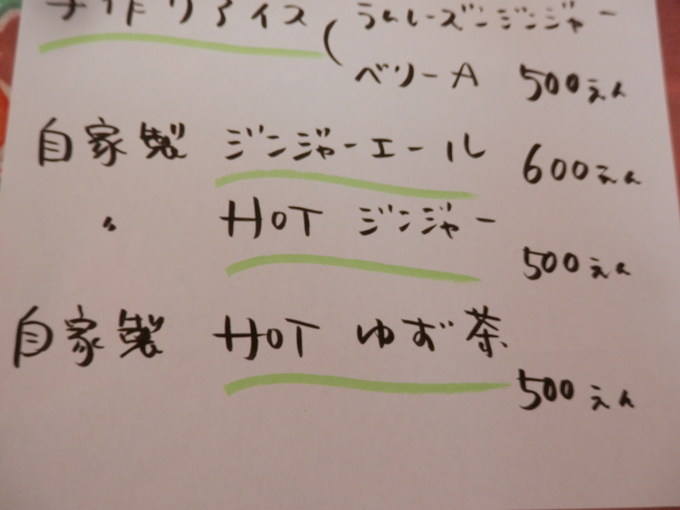 手作りアイス(らむレーズンジンジャー
ベリーA 500えん
自家製 ジンジャーエール 600えん
〃 HOT ジンジャー 500えん
自家製 HOT ゆず茶 500えん